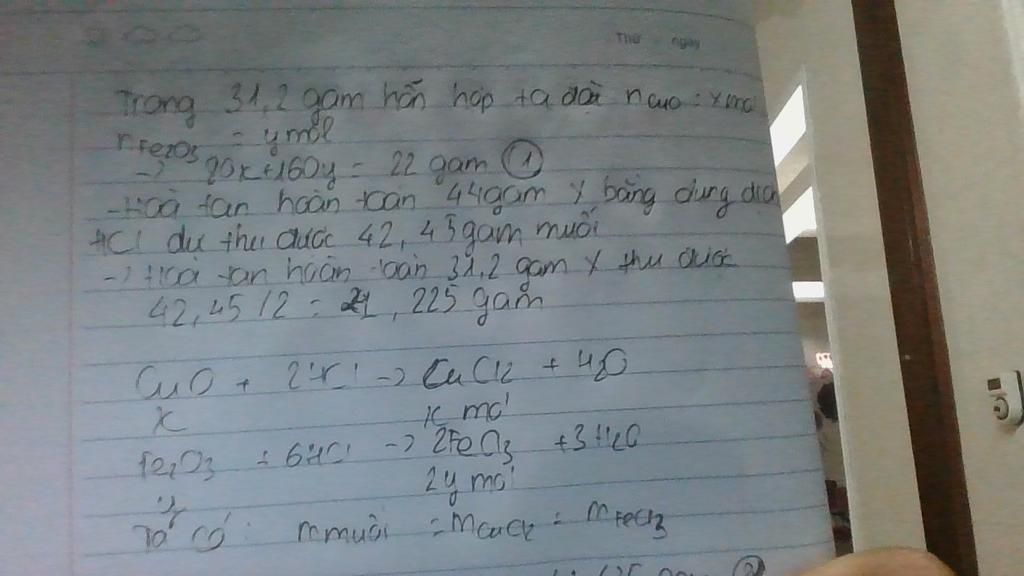 Thứ ngày
Trong 31,2 gam hỗn hợp ta đặt nCuO = x mol
nFe2O3 = y mol
-> 80x + 160y = 22 gam ①
- Hoà tan hoàn toàn 44gam Y bằng dung dịch
HCl dư thu được 42,45 gam muối
-> Hoà tan hoàn toàn 31,2 gam Y thu được
42,45/2 = 21,225 gam
CuO + 2HCl -> CuCl2 + H2O
x x mol
Fe2O3 + 6HCl -> 2FeCl3 + 3H2O
y 2y mol
Ta có: mmuối = mCuCl2 = mFeCl3